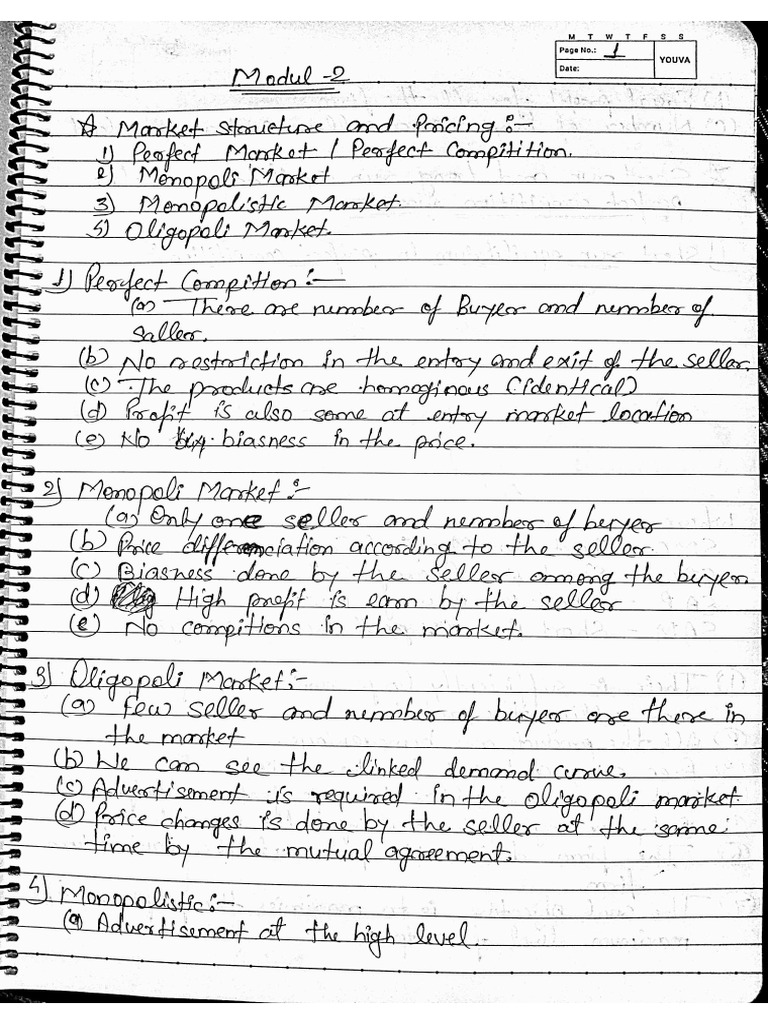 M T W T F S S
Page No.: 1
Date:
YOUVA
Modul -2
☆ Market Structure and Pricing :-
1) Perfect Market / Perfect Compitition.
2) Monopoli Market
3) Monopolistic Market.
4) Oligopoli Market.
1) Perfect Compition :-
(a) There are number of Buyer and number of
Saller.
(b) No restriction in the entry and exit of the seller.
(c) The products are homoginous (identical)
(d) Profit is also same at entry market location
(e) No biasness in the price.
2) Monopoli Market :-
(a) Only one seller and nember of beryer
(b) Price differenciation according to the seller.
(c) Biasness done by the seller among the buyer
(d) High profit is earn by the seller
(e) No compitions in the market.
3) Oligopoli Market :-
(a) few seller and nember of buyer are there in
the market
(b) We can see the linked demand curve.
(c) Advertisement is required in the oligopoli market.
(d) Price changes is done by the seller at the same
time by the mutual agreement.
4) Monopolistic :-
(a) Advertisement at the high level.